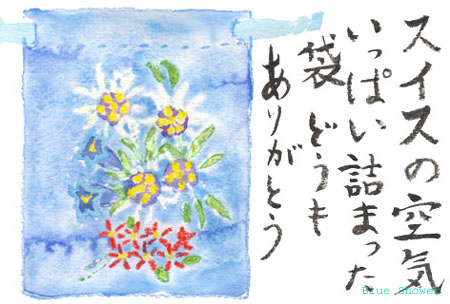 スイスの空気
いっぱい詰まった
袋どうも
ありがとう
Blue Shower